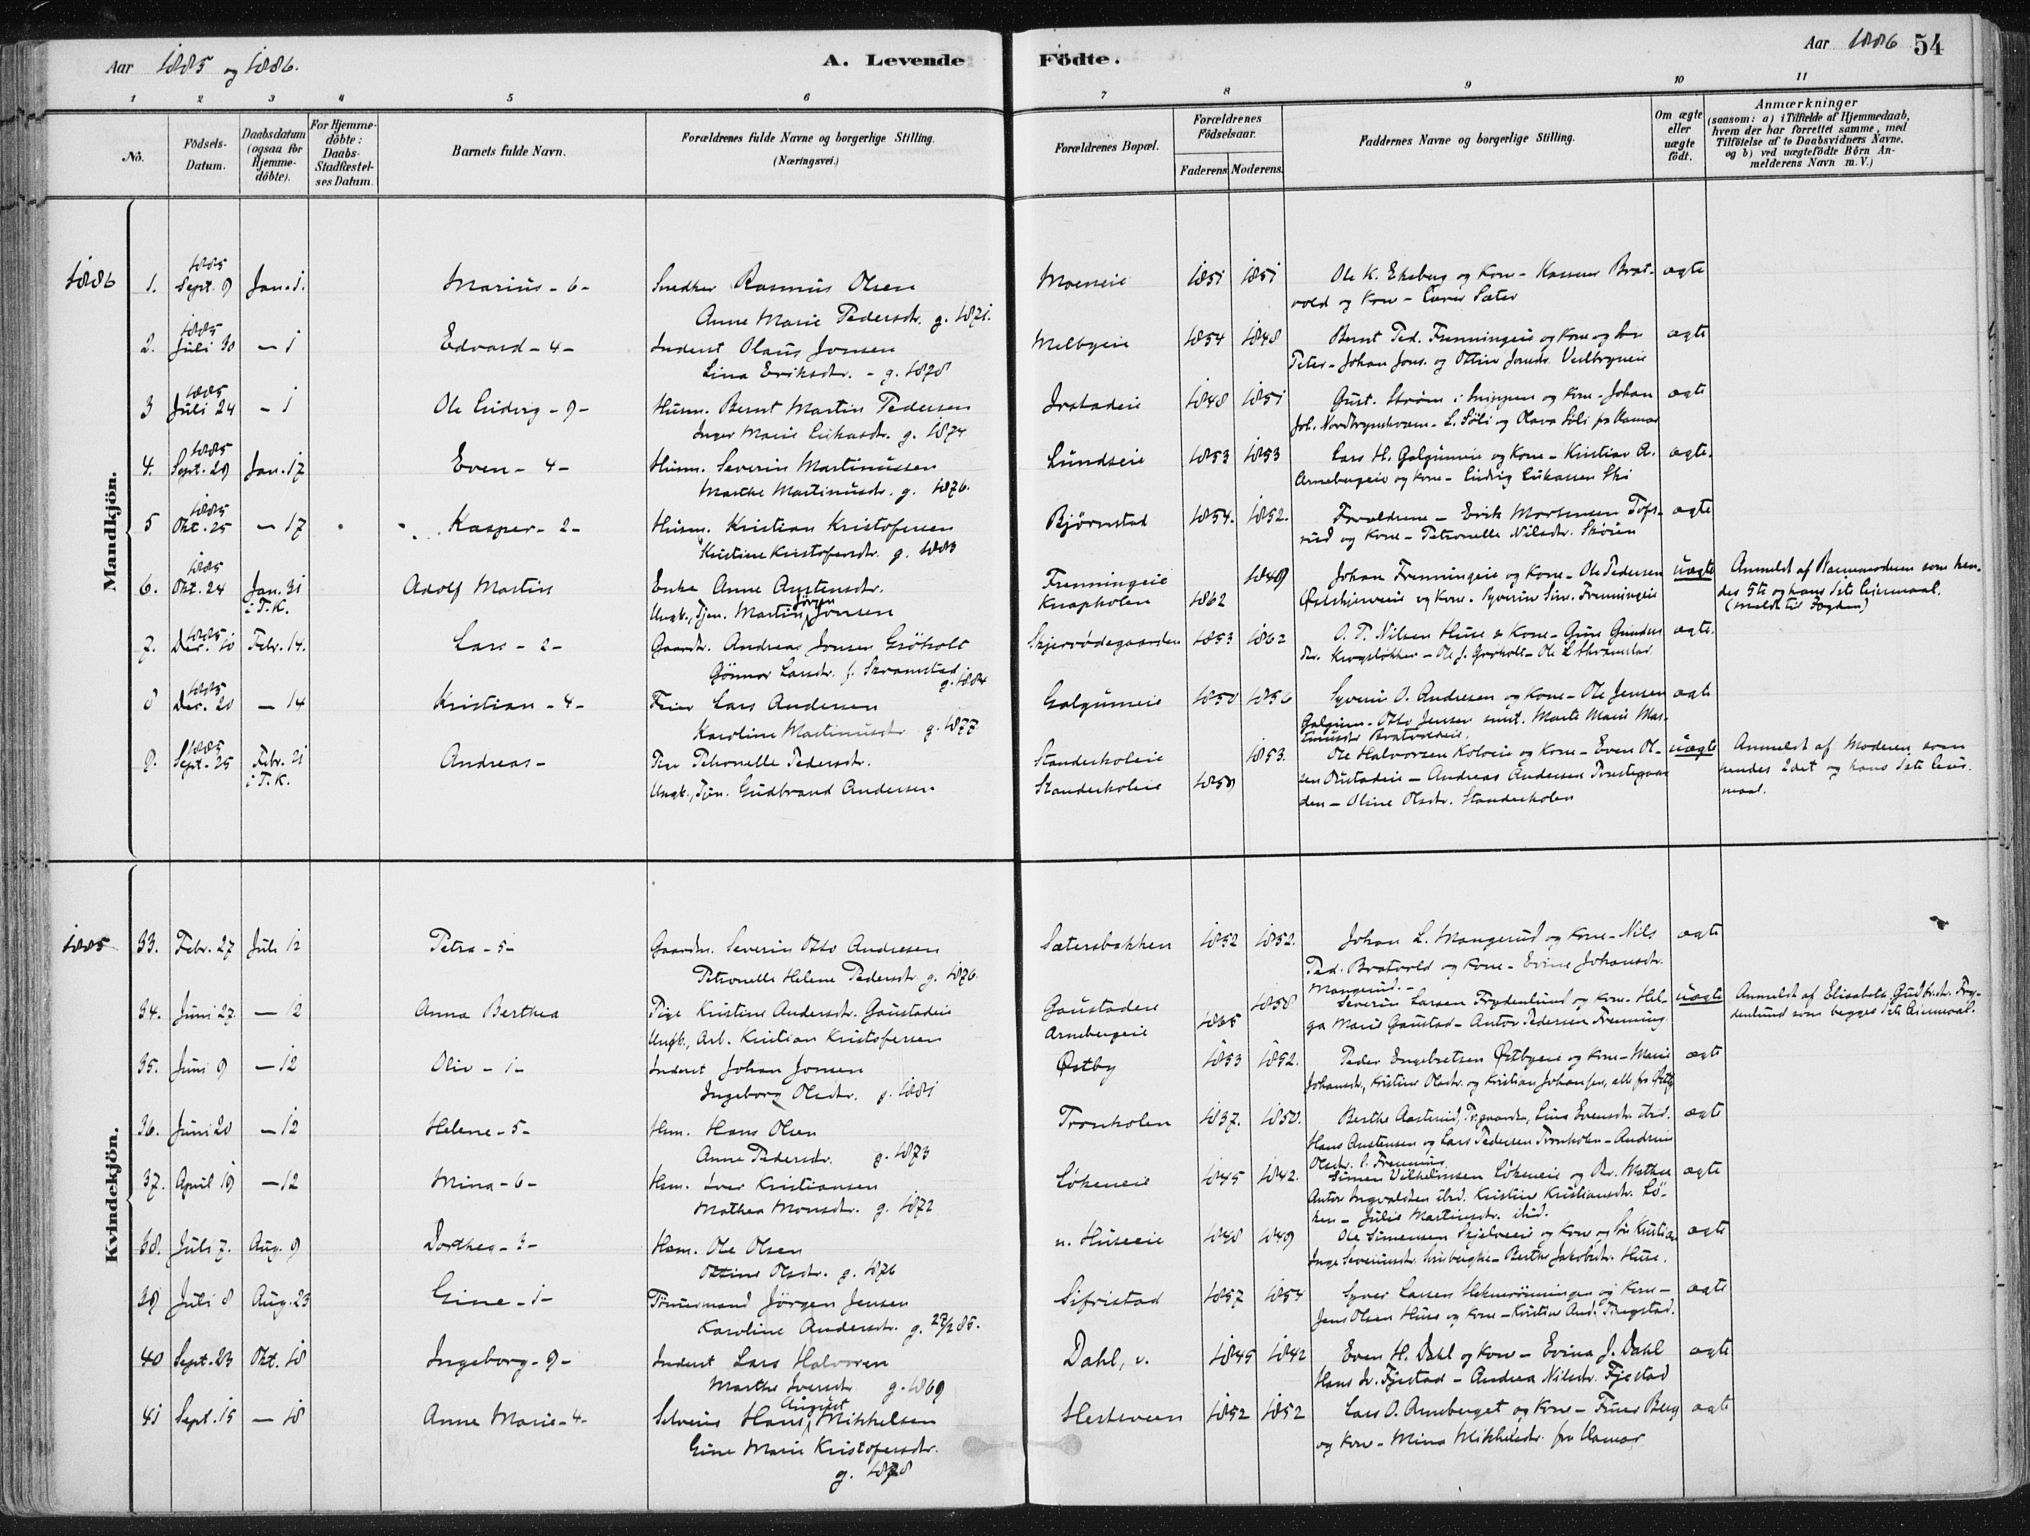 Aar 1885 og 1886.
A. Levende Födte.
Aar 1886 54
1 2 3 4 5 6 7 8 9 10 11
No.
Födsels-Datum.
Daabsdatum (ogsaa for Hjemme-döbte).
For Hjemme-döbte: Daabs-Stadfæstel-ses Datum.
Barnets fulde Navn.
Forældrenes fulde Navne og borgerlige Stilling. (Næringsvei.)
Forældrenes Bopæl.
Forældrenes Födselsaar.
Faderens. Moderens.
Faddernes Navne og borgerlige Stilling.
Om ægte eller uægte födt.
Anmærkninger (saasom: a) i Tilfælde af Hjemmedaab, hvem der har forrettet samme, med Tilföielse af to Daabsvidners Navne. og b) ved uægtefödte Börn An-melderens Navn m. V.)
Mandkjön.
1886 1. 1885 Sept. 9 Jan. 1. Marius - 6 - Snedker Rasmus Olsen Moeneie 1851 1851 Ole K. Ekeberg og Kone - Brat- ægte
Anne Marie Pedersdr. g. 1871. vold og Kone - Sæter
2. 1885 Juli 30 - 1 Edvard - 4 - Inderst Olaus Jonsen Melbyeie 1854 1848 Bernt Ped. Frenningeie og Kone og ægte
Lina Eriksdr. - g. 1878 Peter - Johan Jons. og Ottine Jonsdr.
3 1885 Juli 24 - 1 Ole Ludvig - 9 - Husm. Bernt Martin Pedersen 1848 1851 Gust. Ström i og Kone - Johan ægte
Inger Marie g. 1874 Joh. - L. Söli og Olava Söli fra Hamar
4. 1885 Sept. 29 Jan. 17 Even - 4 - Husm. Severin Martinussen Lundseie 1853 1853 Lars H. Galgumeie og Kone - Kristian A. ægte.
Marthe Martinusdr. g. 1876. Arnebergeie og Kone - Ludvig Lukassen
5 1885 Okt. 25 - 17 Kasper - 2 - Husm. Kristian Kristofersen Bjørnstad 1854. 1852. Forældrene - Erik Mortensen Tofs- ægte
Kristine Kristofersdr. g. 1883 rud og Kone - Petronelle Nilsdr.
6. 1885 Okt. 24 Jan. 31 i T.K. Adolf Martin Enke Anne Austensdr. Frenningeie 1849 Johan Frenningeie og Kone - Ole Pedersen uægte Anmeldt af Barnemoderen som hen-
Ungk., Tjen. Martin Jörgen Jonsen Knapholen 1862 og Kone. Frenningeie des 5te og hans 1ste Leiermaal.
(meldt til Fogden)
7. 1885 Dec. 10 Febr. 14. Lars - 2 - Gaardbr. Andreas Jonsen Gröholt Skjerrödegaarden 1853 1862 O. P. Nilsen Huse & Kone - ægte.
Gönnor Larsdr. f. Skramstad g. 1884 - Ole J. Gröholt - Ole L. Skramstad
8 1885 Dec. 20 - 14 Kristian - 4 - Lars Andersen Galgumeie 1850 1856 Syverin O. Andresen og Kone - Ole Jensen ægte
Karoline Martinusdr. g. 1877 Galgum - Otto Jensen smst. Marte Marie Mar-
tinusdr. Bratvoldeie.
9. 1885 Sept. 25 Febr. 21 i T.K. Andreas - Pige Petronelle Pedersdr. Standerholeie 1853. Ole Halvorsen Koloeie og Kone - Even Ol- uægte Anmeldt af Moderen som
Ungk., Tjen. Gudbrand Andersen. Standerholeie 1859 sen - Andreas Andersen Prestegaar- hendes 2det og hans 1ste Leier-
den - Oline Olsdr. Standerholen maal.
Kvindekjön.
1885 33. Febr. 27 Juli 12 Petra - 5 - Gaardm. Severin Otto Andresen Sætersbakken 1852 1852. Johan L. Mangerud og Kone - Nils ægte
Petronelle Helene Pedersdr. g. 1876. Ped. Bratvold og Kone - Evine Johansdr.
Mangerud. -
34. Juni 27. - 12 Anna Berthea Pige Kristine Andersdr. Gaustadeie Gaustadeie 1858 Severin Larsen Frydenlund og Kone - Hel- uægte Anmeldt af Elisabeth Gudbr.dr. Fry-
Ungk., Arb. Kristian Kristofersen Arnebergeie 1865 ga Marie Gaustad - Anton Pedersen Frenning denlund som begges 1ste Leiermaal.
35. Juni 9 - 12 Oliv - 1 - Inderst Johan Jonsen Østby 1853 1852. Peder Engebretsen Østbyeie og Kone - Marie ægte
Ingeborg Olsdr. g. 1881 Johansdr., Kristine Olsdr. og Kristian Johansen, alle fra Østby
36. Juni 20 - 12 Helene - 5 - Hsm. Hans Olsen Tronholen 1837. 1850. Berthe Aasterud, Tryggvaarden, Lina Evensdr. ibid. ægte
Anne Pedersdr. g. 1873 Hans Austensen og Lars Pedersen Tronholen - Andrine
Olsdr. Frenning.
37. April 19 - 12 Mina - 6 - Hsm. Iver Kristiansen Løkeneie 1845 1842. Simen Vilhelmsen Løkeneie og Mathea ægte
Mathea Monsdr. g. 1872 Anton Ingvaldsen ibid. Kristine Kristiansdr. Lø-
ken - Julie Martinsdr. ibid.
38. Juli 7. Aug. 9 Dorthea - 3 - Hsm. Ole Olsen n. Huseeie 1848 1849 Ole Simensen Skjelveie og Kone og Kristian ægte
Ottine Olsdr. g. 1876 Inge Severinsdr. - Berthe Jakobsdr. Huse.
39 Juli 8 Aug. 23 Gine - 1 - Tömmermand Jörgen Jensen Sifristad 1857 1854 Syver Larsen og Kone - ægte
Karoline Andersdr. g. 27/2 85. Jens Olsen Huse og Kone - Kristian And.
40 Sept. 23 Okt. 18 Ingeborg - 9 - Inderst Lars Halvorsen Dahl, v. 1845 1842 Even H. Dahl og Kone - Evina J. Dahl ægte
Marthe Iversdr. g. 1869 Hans Iv. Fjestad - Andrea Nilsdr. Fjestad
41 Sept. 15 - 18 Anne Marie - 4 - Selveier Hans August Mikkelsen Hestsveen 1852 1852 Lars O. Arneberget og Kone - Berg ægte
Gine Marie Kristofersdr. og Kone - Mina Mikkelsdr. fra Hamar
g. 1878